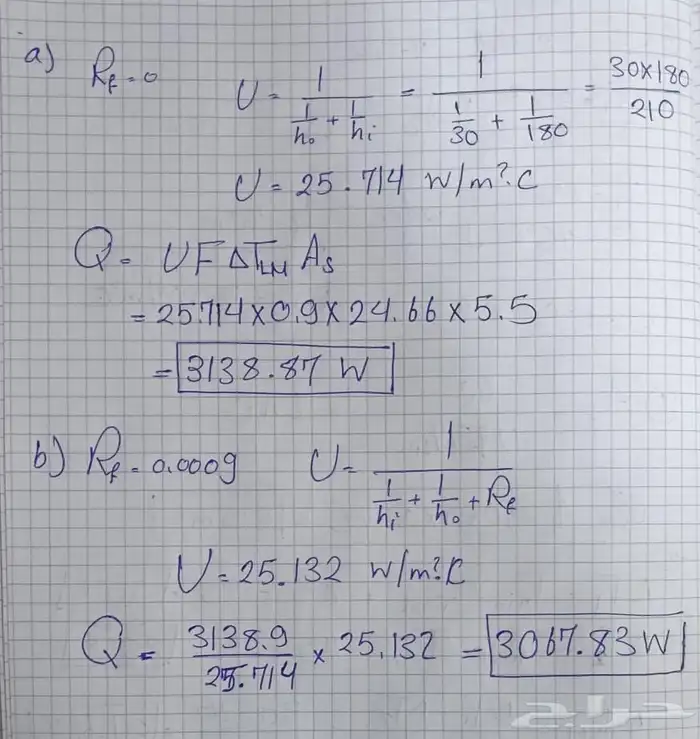 a) R_f = 0 U = 1 / (1/h_o + 1/h_i) = 1 / (1/30 + 1/180) = 30×180 / 210
U = 25.714 W/m².C
Q = U F ΔT_LM A_s
= 25.714 × 0.9 × 24.66 × 5.5
= 3138.87 W
b) R_f = 0.0009 U = 1 / (1/h_i + 1/h_o + R_f)
U = 25.132 W/m².C
Q = 3138.9 / 25.714 × 25.132 = 3067.83 W
حراج